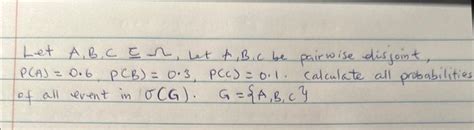 Let A,B,C ⊆ Ω, Let A,B,C be pairwise disjoint,
P(A) = 0.6, P(B) = 0.3, P(C) = 0.1. Calculate all probabilities
of all event in σ(G). G = {A,B,C}